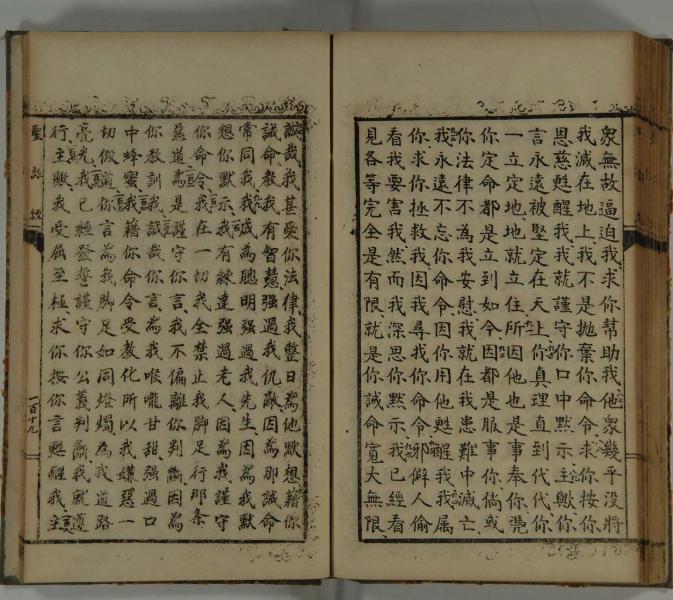 衆無故逼迫我求你幫助我他衆幾乎没將
我滅在地上我不是拋棄你命令求你按你
恩慈甦醒我我就謹守你口中默示主歟你
言永遠被堅定在天上你真理直到代代你
一立定地地就立住所因他也是事奉你凴
你定命都是立到如今因都是服事你倘或
你法律不為我安慰我就在我患難中滅亡
我永遠不忘你命令因你用他甦醒我我属
你求你拯救我因我尋我你命令邪僻人偷
看我要害我然而我深思你黙示我已經看
見各等完全是有限就是你誡命寬大無限
誠哉我甚愛你法律我整日為他默想藉你
誡命教我我有智慧强過我仇敵因為那誡命
常同我我成為聰明强過我先生因為我默
想你默示我有練達强過老人因為我謹守
你命令我在一切我全禁止我脚足行那条
惡道為是謹守你言我不偏離你判斷因為
你教訓我誠哉你言為我喉嚨甘甜强過口
中蜂蜜我藉你命令受教化所以我嫌惡一
切假道你言為我脚足如同燈燭為我道路
亮光我已經發誓謹守你公義判斷我就遵
行主歟我受屈至極求你按你言甦醒我主
聖詠經
一百十九